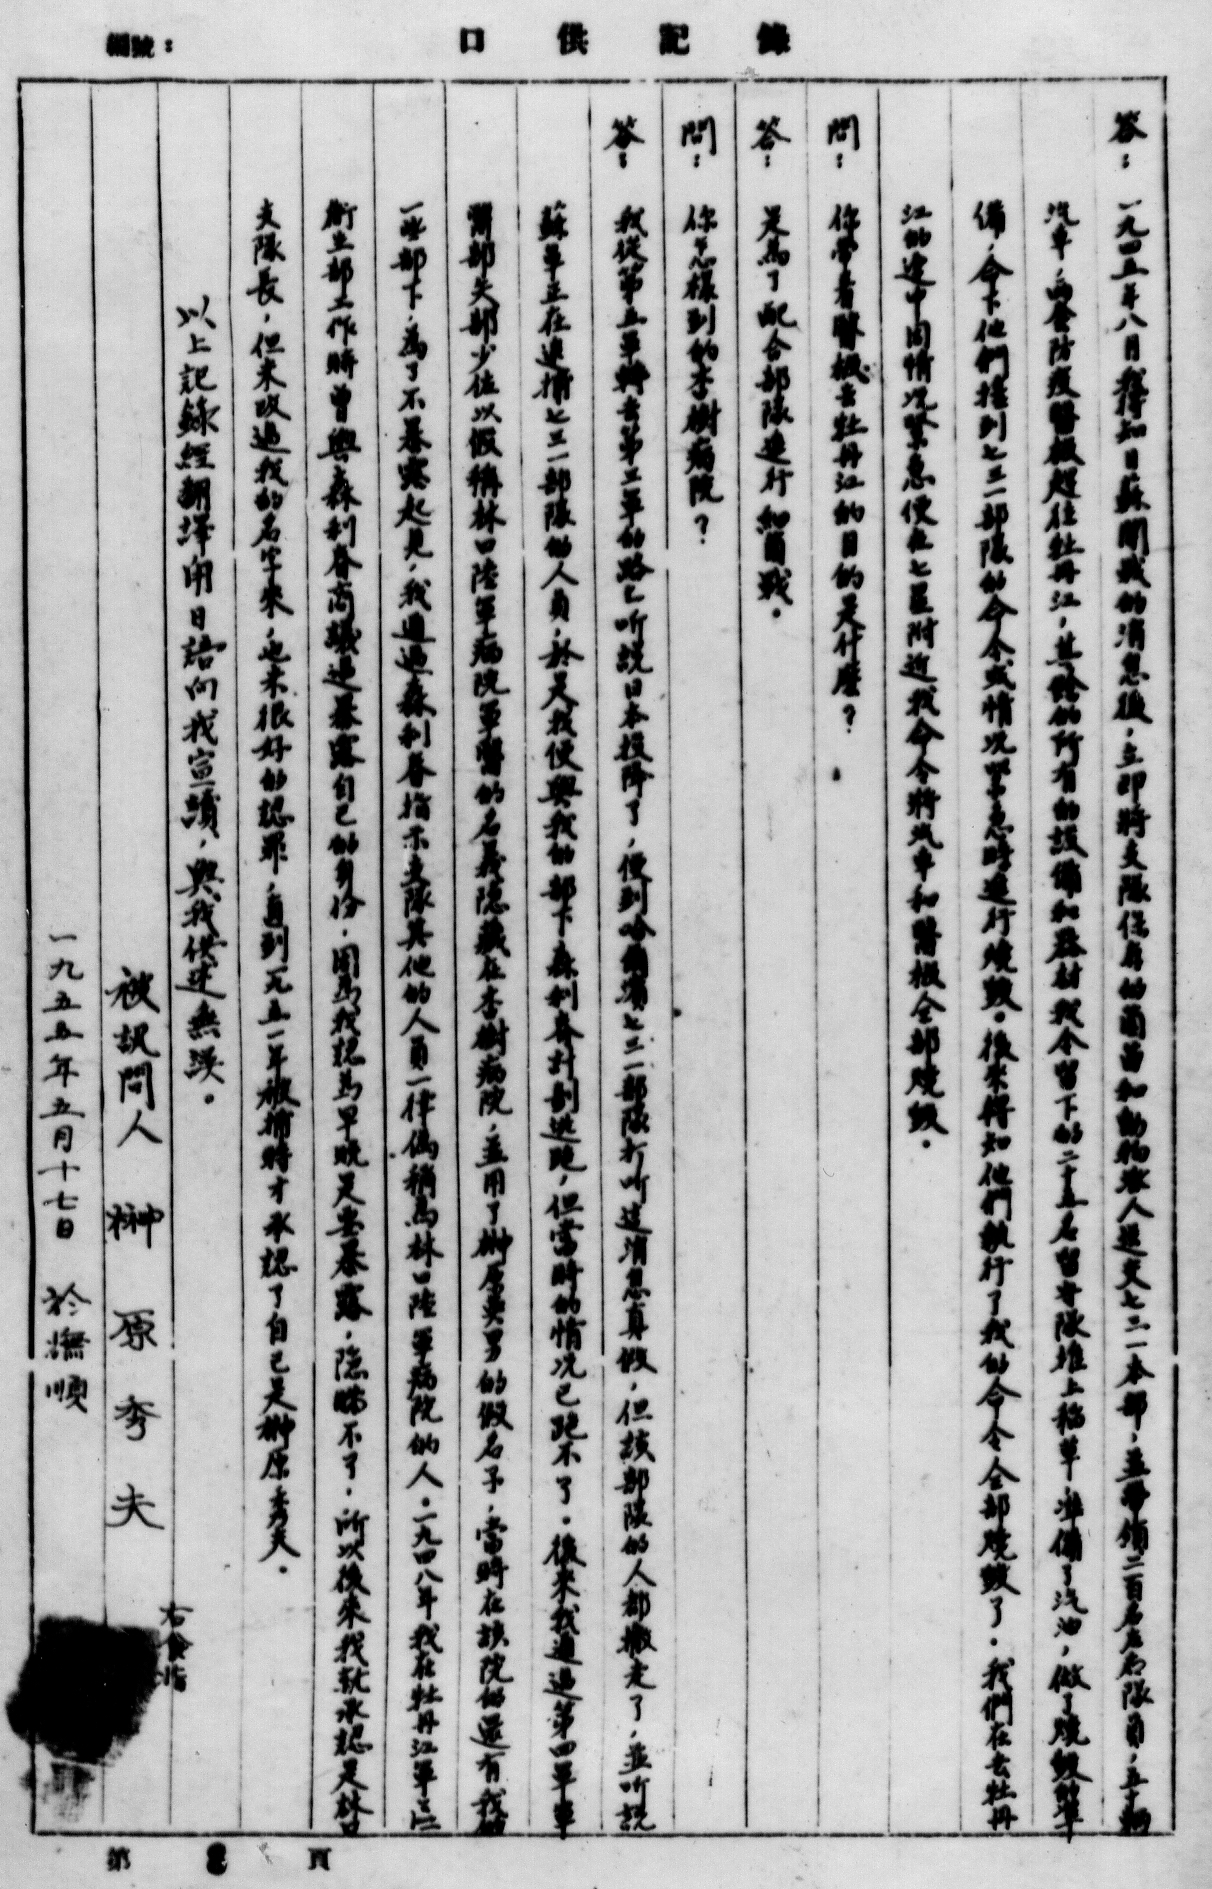 口供記錄
編號：
答：一九四五年八月我得知日蘇開戰的消息後，立即將支隊保有的菌苗和動物派人送交七三一本部，並帶領二百名左右隊員，五十輛
汽車，兩套防疫醫極趕往牡丹江，其餘的所有的設備和器材我令留下的二十五名留守隊堆上稻草，準備了汽油，做了燒毀的準
備，令下他們接到七三一部隊的命令或情況緊急時進行燒毀。後來得知他們執行了我的命令全部燒毀了。我們在去牡丹
江的途中因情況緊急便在七星附近我命令將汽車和醫極全部燒毀。
問：你帶着醫極去牡丹江的目的是什麼？
答：是為了配合部隊進行細菌戰。
問：你怎樣到的杏樹病院？
答：我從第五軍轉去第三軍的路上听說日本投降了，便到哈爾濱七三一部隊打听這消息真假，但該部隊的人都撤走了，並听說
蘇軍正在追捕七三一部隊的人員，於是我便與我的部下森利春計劃逃跑，但當時的情況已跑不了。後來我通過第四軍軍
醫部矢部少佐以假稱林口陸軍病院軍醫的名義隱藏在杏樹病院，並用了榊原英男的假名子，當時在該院的還有我的
一些部下，為了不暴露起見，我通過森利春指示支隊其他的人員一律偽稱為林口陸軍病院的人。一九四八年我在牡丹江軍區
衛生部工作時曾與森利春商議過暴露自己的身份，因為我認為早晚是要暴露，隱瞞不了，所以後來我就承認是林口
支隊長，但未改過我的名字來，也未很好的認罪，直到一九五一年被捕時才承認了自己是榊原秀夫。
以上記錄經翻譯用日語向我宣讀，與我供述無誤。
被訊問人　榊原秀夫
右食指
一九五五年五月十七日　於撫順
第 頁